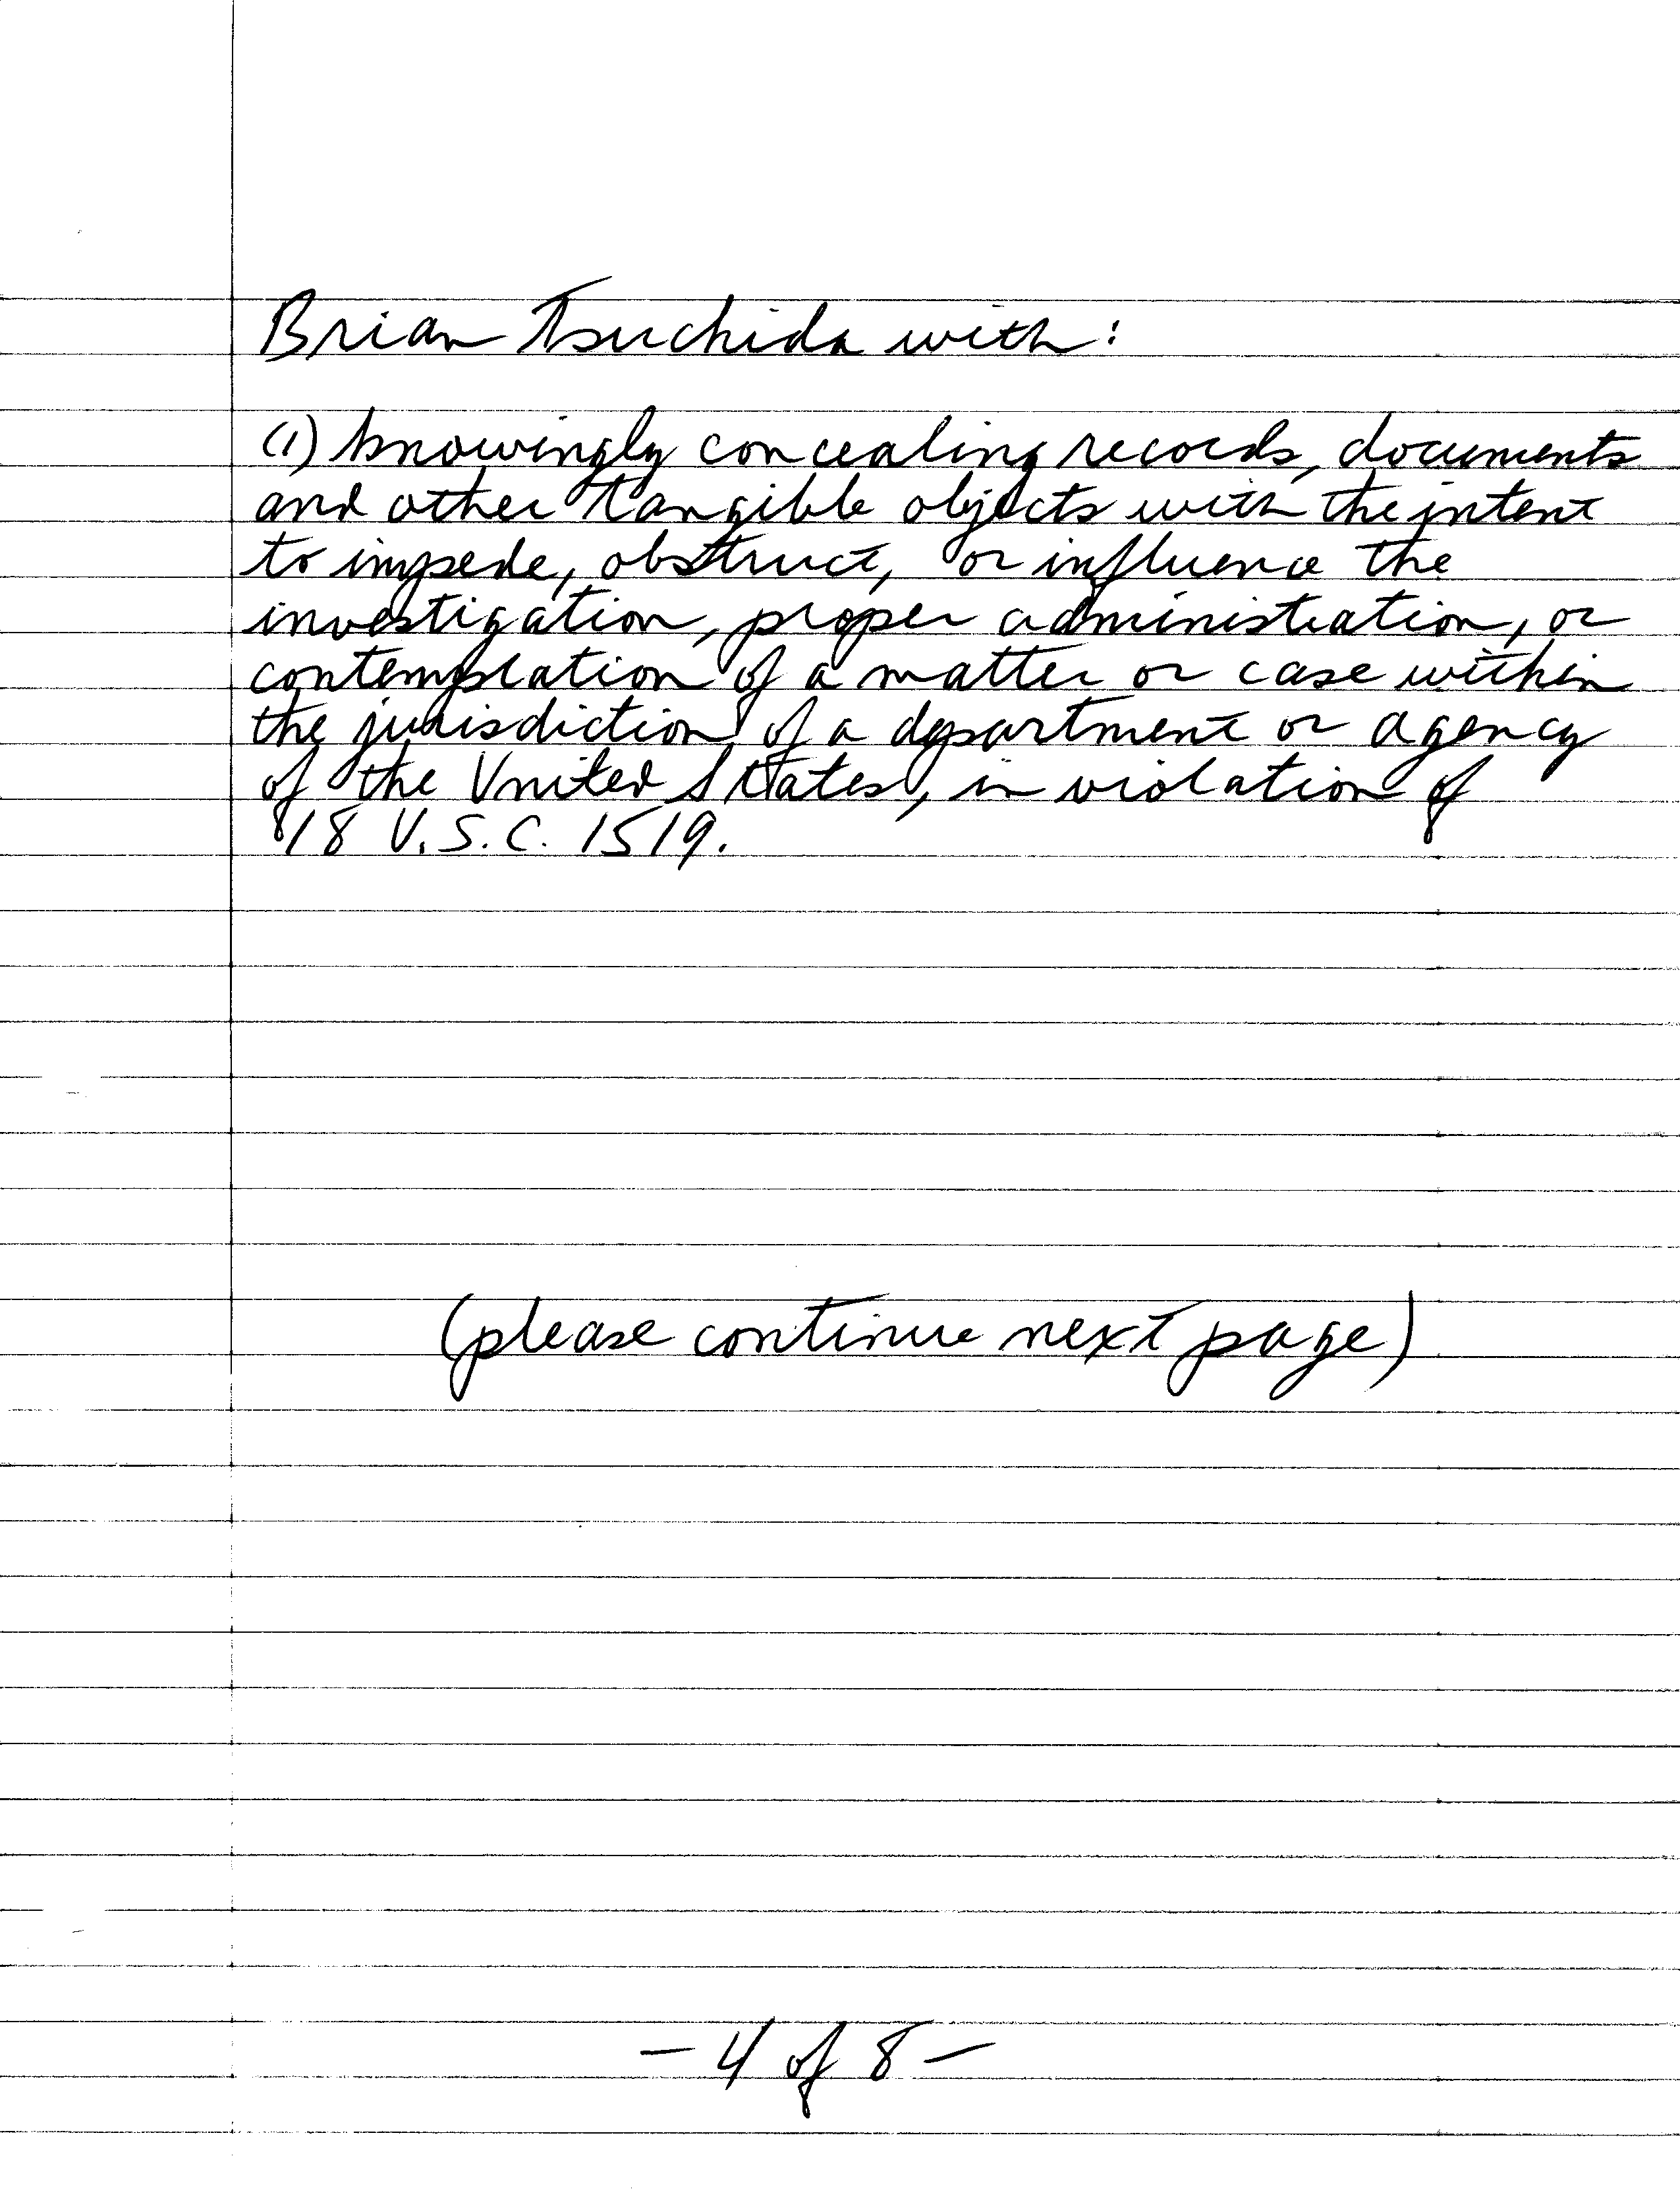 Brian Tsuchida with:
(1) knowingly concealing records, documents
and other tangible objects with the intent
to impede, obstruct, or influence the
investigation, proper administration, or
contemplation of a matter or case within
the jurisdiction of a department or agency
of the United States, in violation of
18 U.S.C. 1519.
(please continue next page)
- 4 of 8 -